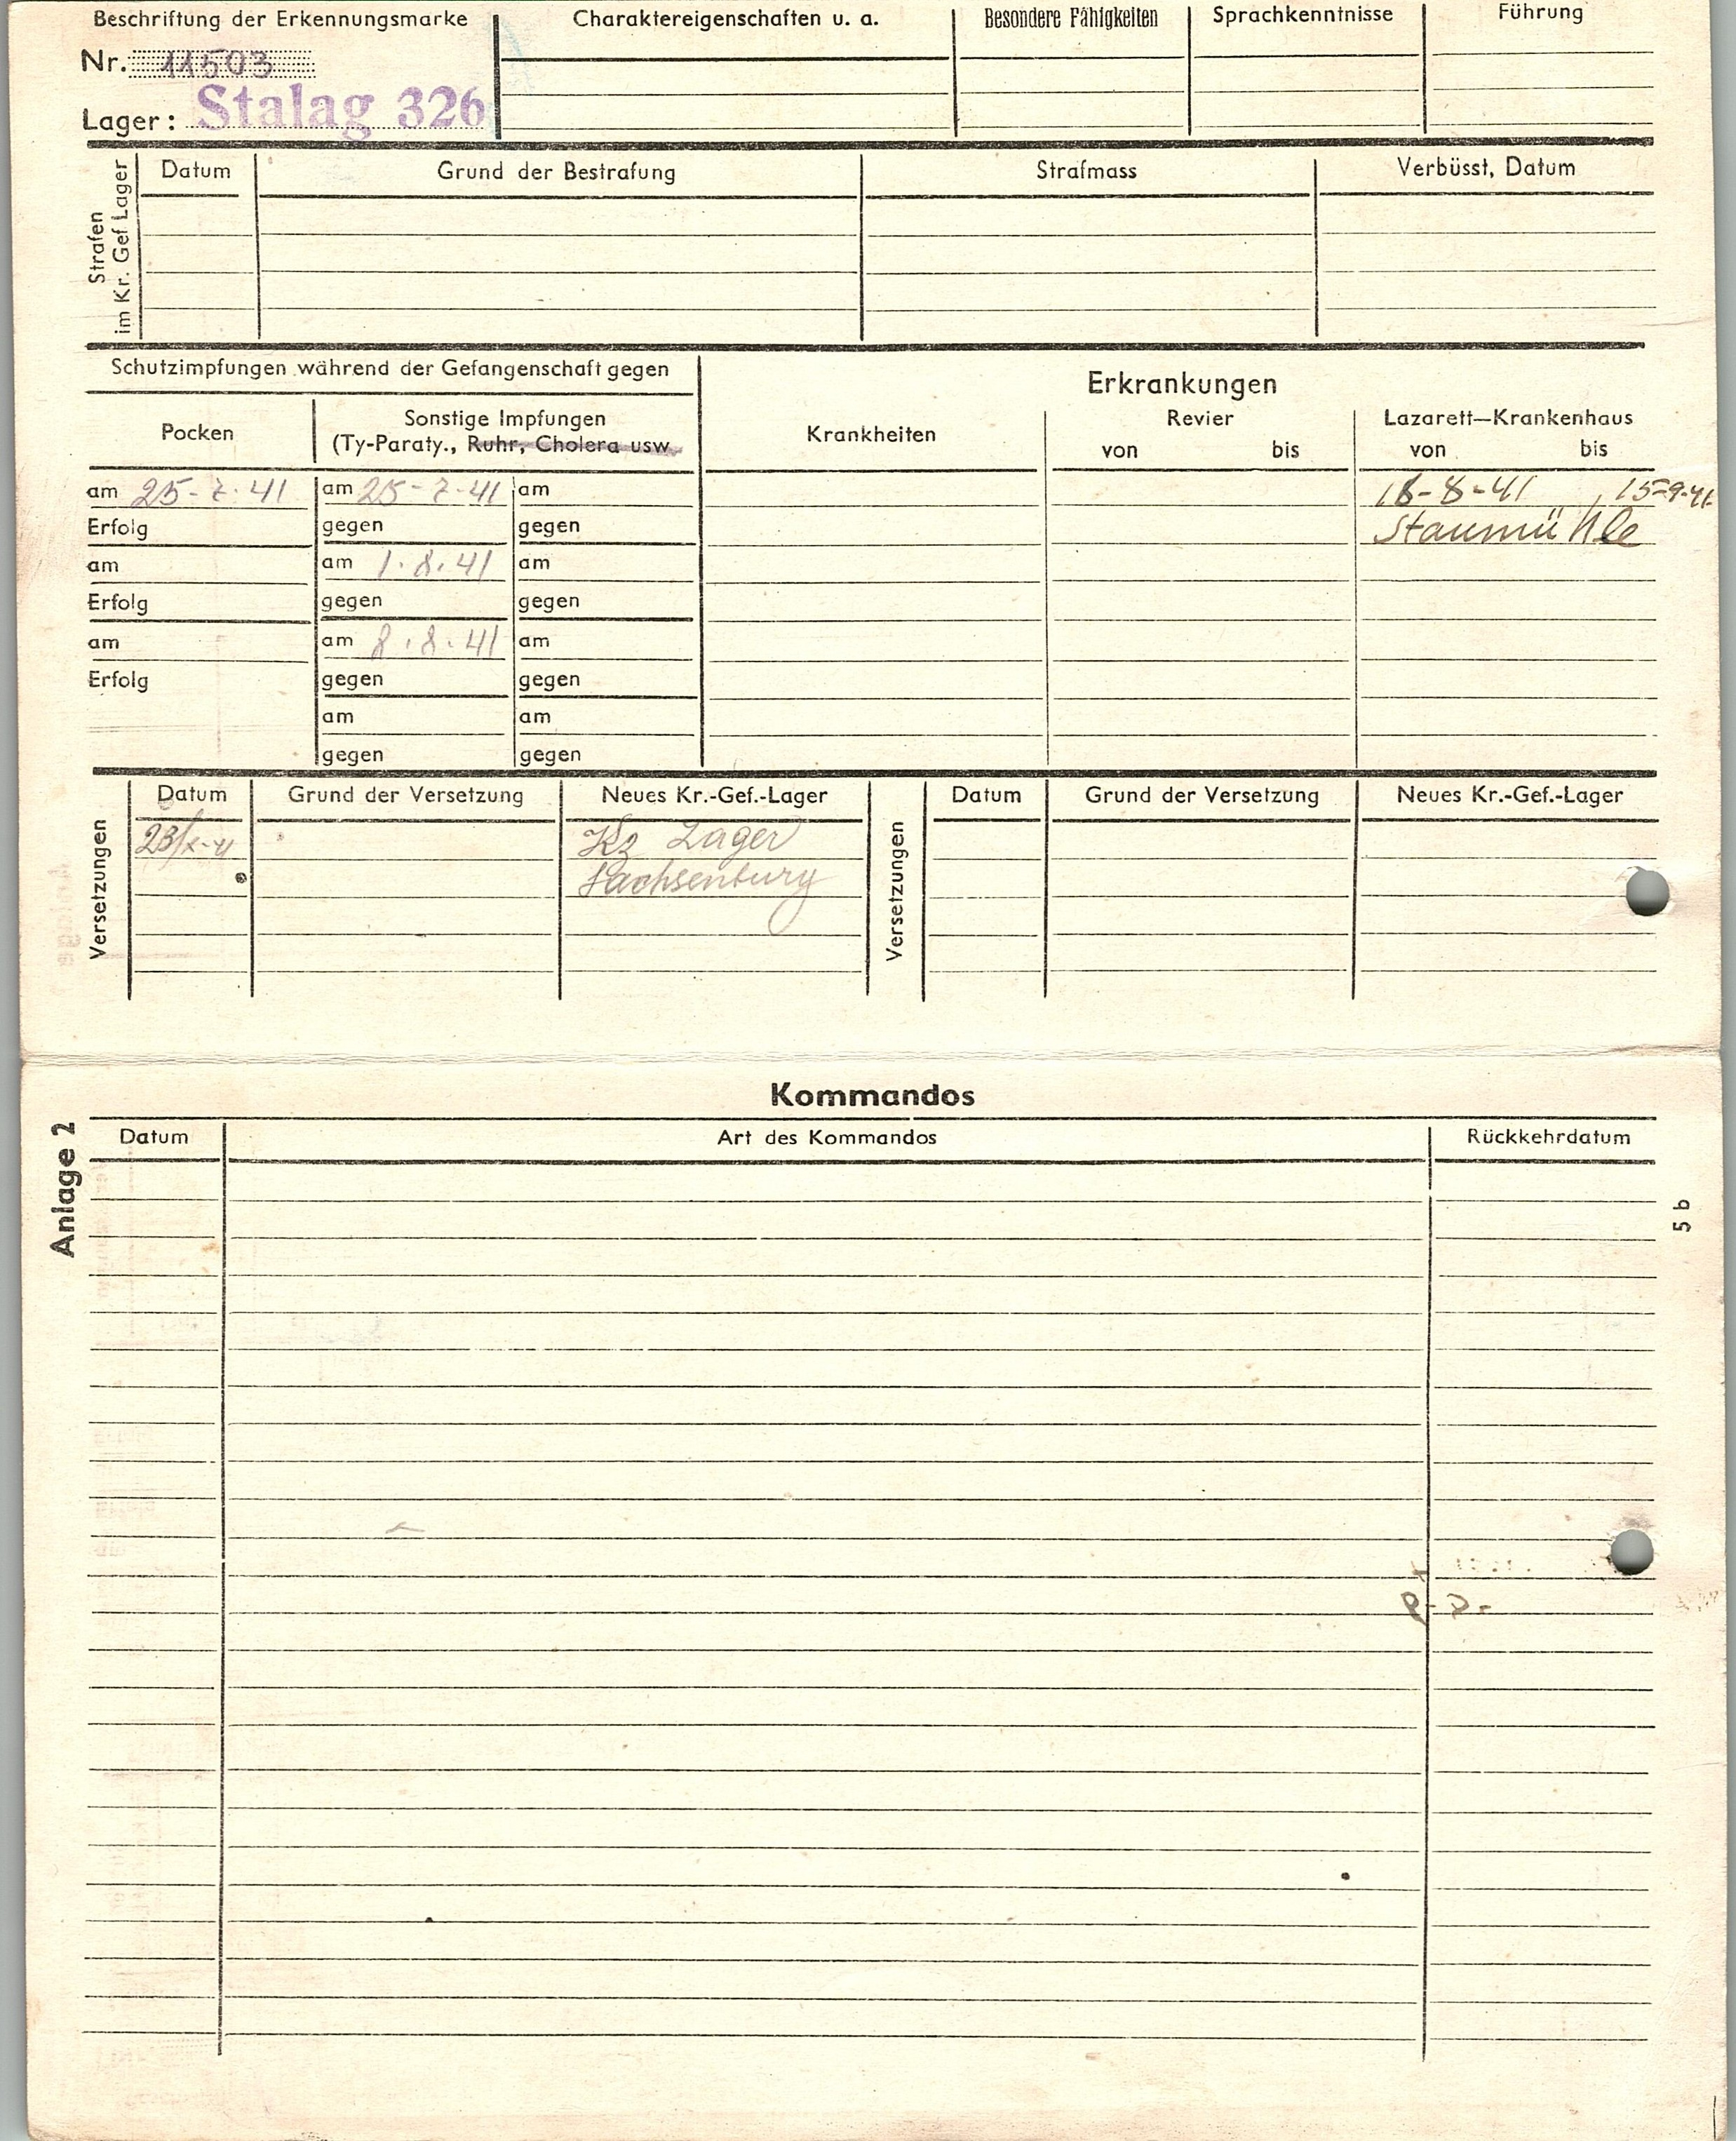 Beschriftung der Erkennungsmarke
Nr. 11503
Lager: Stalag 326
Charaktereigenschaften u. a.
Besondere Fähigkeiten
Sprachkenntnisse
Führung
Strafen
im Kr. Gef Lager
Datum
Grund der Bestrafung
Strafmass
Verbüsst, Datum
Schutzimpfungen während der Gefangenschaft gegen
Pocken
Sonstige Impfungen
(Ty-Paraty., Ruhr, Cholera usw.
Erkrankungen
Krankheiten
Revier
von bis
Lazarett—Krankenhaus
von bis
am 25-7-41 am 25-7-41 am
18-8-41 15-9-41
Erfolg gegen gegen
Staumühle
am am 1.8.41 am
Erfolg gegen gegen
am am 8.8.41 am
Erfolg gegen gegen
am am
gegen gegen
Versetzungen
Datum Grund der Versetzung Neues Kr.-Gef.-Lager
23/X-41 Kz Lager
Sachsenburg
Versetzungen
Datum Grund der Versetzung Neues Kr.-Gef.-Lager
Kommandos
Anlage 2
Datum Art des Kommandos Rückkehrdatum
5 b